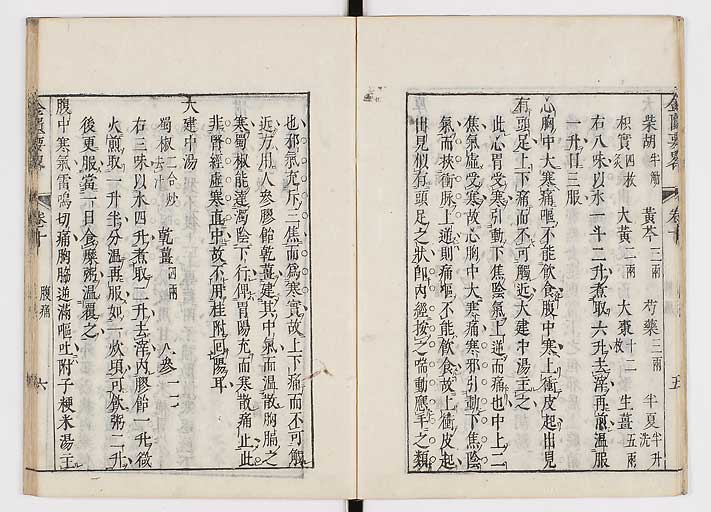 金匱要畧 卷十 五
柴胡半觔 黃芩三兩 芍藥三兩 半夏半升洗
枳實四枚炙 大黃二兩 大棗十二枚 生薑五兩
右八味以水一斗二升煮取六升去滓再煎溫服
一升日三服
心胸中大寒痛嘔不能飲食腹中寒上衝皮起出見
有頭足上下痛而不可觸近大建中湯主之
此心胃受寒引動下焦陰氣上逆而痛也中上二
焦氣虛受寒故心胸中大寒痛寒邪引動下焦陰
氣而挾衝脉上逆則痛嘔不能飲食故上衝皮起
出見似有頭足之狀卽內經按之喘動應手之類
也邪氣充斥三焦而爲寒實故上下痛而不可觸
近方用人參膠飴乾薑建其中氣而溫散胸膈之
寒蜀椒能達濁陰下行俾胃陽充而寒散痛止此
非腎經虛寒直中故不用桂附回陽耳
大建中湯
蜀椒二合炒去汗 乾薑四兩 人參一
右三味以水四升煮取二升去滓內膠飴一升微
火煎取一升半分溫再服如一炊頃可飲粥二升
後更服當一日食糜粥溫覆之
腹中寒氣雷鳴切痛胸脇逆滿嘔吐附子粳米湯主
金匱要畧 卷十 腹痛 六